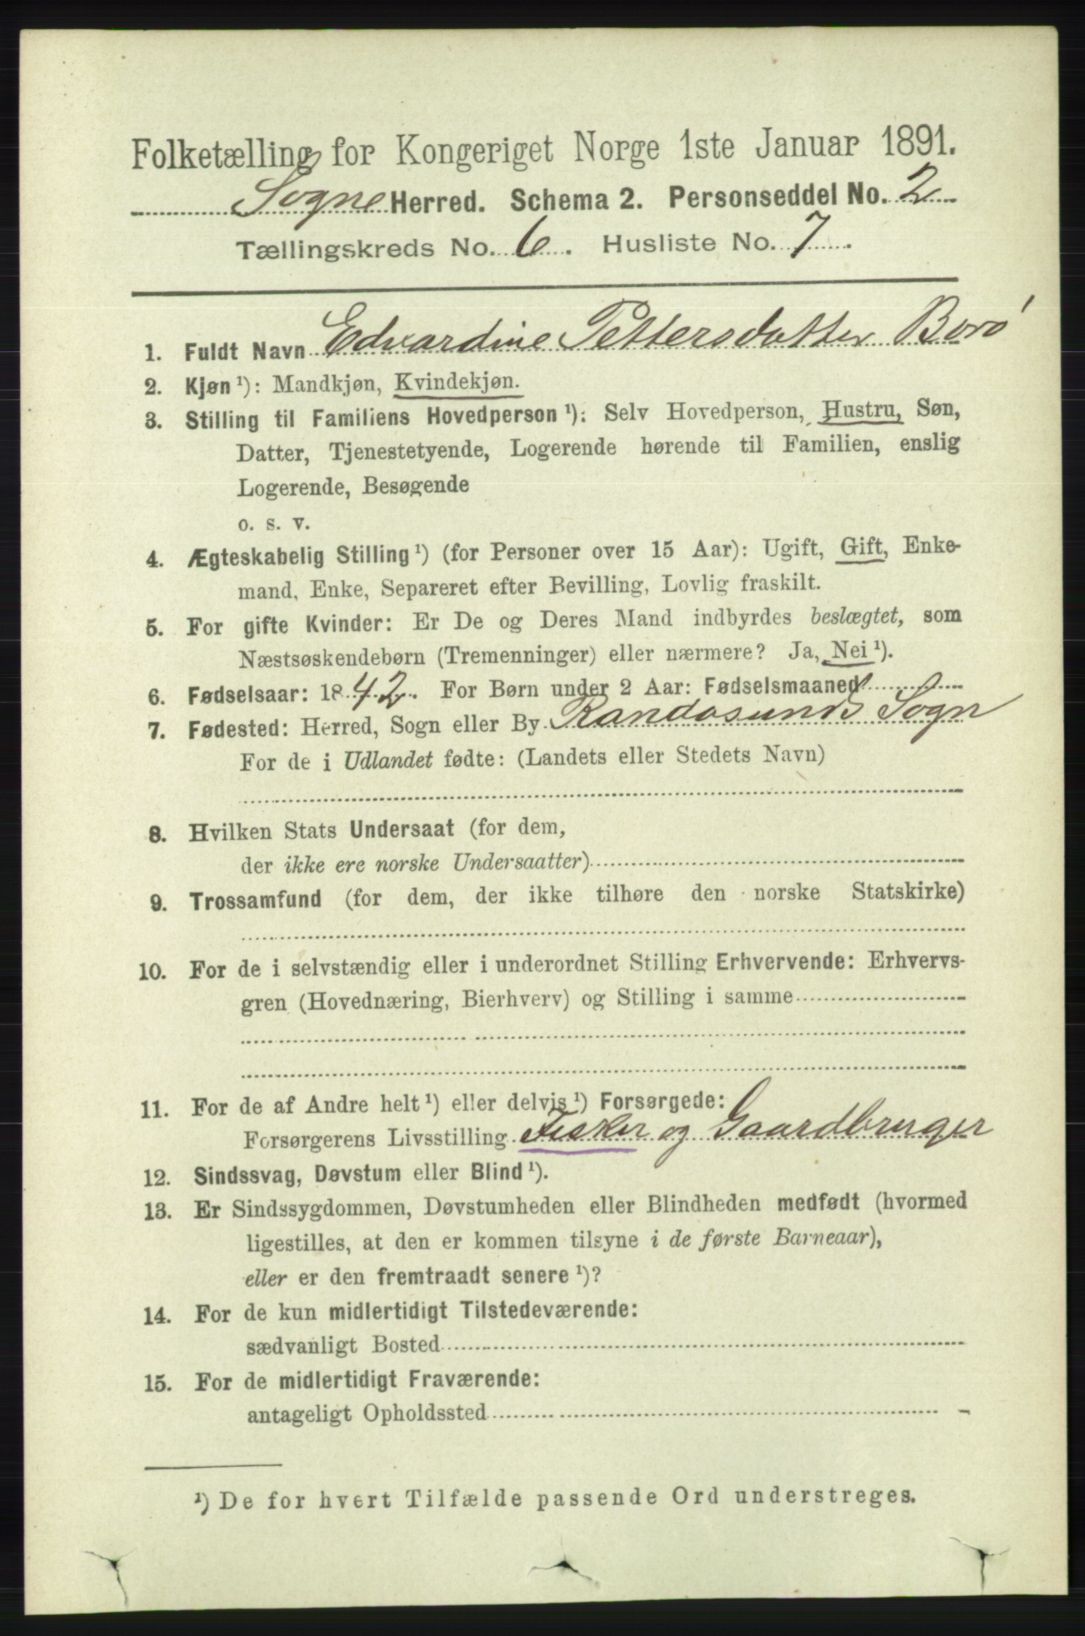 Folketælling for Kongeriget Norge 1ste Januar 1891.
Sogne Herred. Schema 2. Personseddel No. 2
Tællingskreds No. 6. Husliste No. 7.
1. Fuldt Navn Edvardine Pettersdatter Borø
2. Kjøn ¹): Mandkjøn, Kvindekjøn.
3. Stilling til Familiens Hovedperson ¹): Selv Hovedperson, Hustru, Søn,
Datter, Tjenestetyende, Logerende hørende til Familien, enslig
Logerende, Besøgende
o. s. v.
4. Ægteskabelig Stilling ¹) (for Personer over 15 Aar): Ugift, Gift, Enke-
mand, Enke, Separeret efter Bevilling, Lovlig fraskilt.
5. For gifte Kvinder: Er De og Deres Mand indbyrdes beslægtet, som
Næstsøskendebørn (Tremenninger) eller nærmere? Ja, Nei ¹).
6. Fødselsaar: 1842. For Børn under 2 Aar: Fødselsmaaned
7. Fødested: Herred, Sogn eller By Randøsunds Sogn
For de i Udlandet fødte: (Landets eller Stedets Navn)
8. Hvilken Stats Undersaat (for dem,
der ikke ere norske Undersaatter)
9. Trossamfund (for dem, der ikke tilhøre den norske Statskirke)
10. For de i selvstændig eller i underordnet Stilling Erhvervende: Erhvervs-
gren (Hovednæring, Bierhverv) og Stilling i samme
11. For de af Andre helt ¹) eller delvis ¹) Forsørgede:
Forsørgerens Livsstilling Fisker og Gaardbruger
12. Sindssvag, Døvstum eller Blind ¹).
13. Er Sindssygdommen, Døvstumheden eller Blindheden medfødt (hvormed
ligestilles, at den er kommen tilsyne i de første Barneaar),
eller er den fremtraadt senere ¹)?
14. For de kun midlertidigt Tilstedeværende:
sædvanligt Bosted
15. For de midlertidigt Fraværende:
antageligt Opholdssted
¹) De for hvert Tilfælde passende Ord understreges.